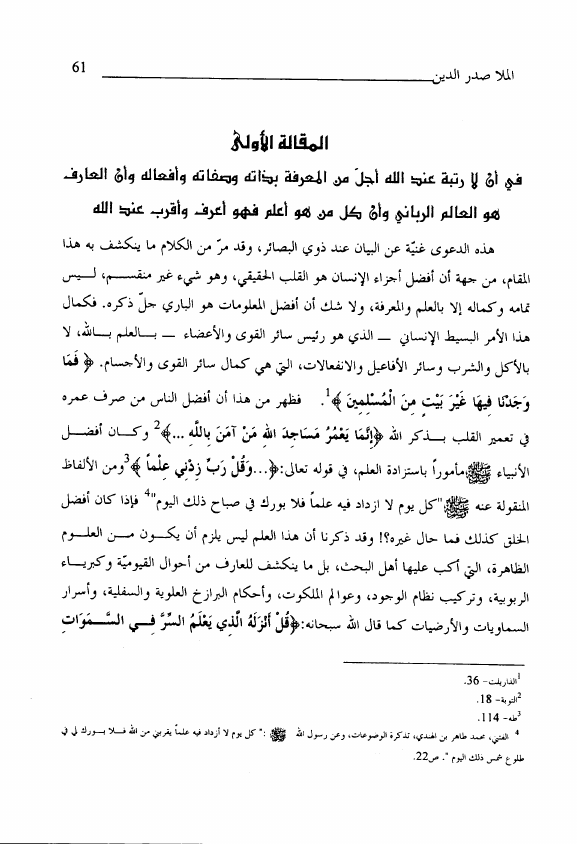 الملا صدر الدين 61
المقالة الأولى
في أن لا رتبة عند الله أجلّ من المعرفة بذاته وصفاته وأفعاله وأن العارف
هو العالم الرباني وأن كل من هو أعلم فهو أعرف وأقرب عند الله
هذه الدعوى غنيّة عن البيان عند ذوي البصائر، وقد مرّ من الكلام ما ينكشف به هذا
المقام، من جهة أن أفضل أجزاء الإنسان هو القلب الحقيقي، وهو شيء غير منقسم، ليس
تمامه وكماله إلا بالعلم والمعرفة، ولا شك أن أفضل المعلومات هو الباري جلّ ذكره. فكمال
هذا الأمر البسيط الإنساني – الذي هو رئيس سائر القوى والأعضاء – بالعلم بالله، لا
بالأكل والشرب وسائر الأفاعيل والانفعالات، التي هي كمال سائر القوى والأجسام. ﴿ فَمَا
وَجَدْنَا فِيهَا غَيْرَ بَيْتٍ مِنَ الْمُسْلِمِينَ ﴾1. فظهر من هذا أن أفضل الناس من صرف عمره
في تعمير القلب بذكر الله ﴿إِنَّمَا يَعْمُرُ مَسَاجِدَ اللهِ مَنْ آمَنَ بِاللَّهِ ...﴾2 وكان أفضل
الأنبياء ﷺ مأموراً باستزادة العلم، في قوله تعالى:﴿...وَقُلْ رَبِّ زِدْنِي عِلْماً ﴾3 ومن الألفاظ
المنقولة عنه ﷺ "كل يوم لا ازداد فيه علماً فلا بورك في صباح ذلك اليوم"4 فإذا كان أفضل
الخلق كذلك فما حال غيره؟! وقد ذكرنا أن هذا العلم ليس يلزم أن يكون من العلوم
الظاهرة، التي أكب عليها أهل البحث، بل ما ينكشف للعارف من أحوال القيوميّة وكبرياء
الربوبية، وتركيب نظام الوجود، وعوالم الملكوت، وأحكام البرازخ العلوية والسفلية، وأسرار
السماويات والأرضيات كما قال الله سبحانه:﴿قُلْ أَنْزَلَهُ الَّذِي يَعْلَمُ السِّرَّ فِي السَّمَوَاتِ
1الذاريات- 36.
2التوبة- 18.
3طه- 114.
4 الفتني، محمد طاهر بن الهندي، تذكرة الوضوعات، وعن رسول الله ﷺ :" كل يوم لا أزداد فيه علماً يقربني من الله فلا بورك لي في
طلوع شمس ذلك اليوم ". ص22.